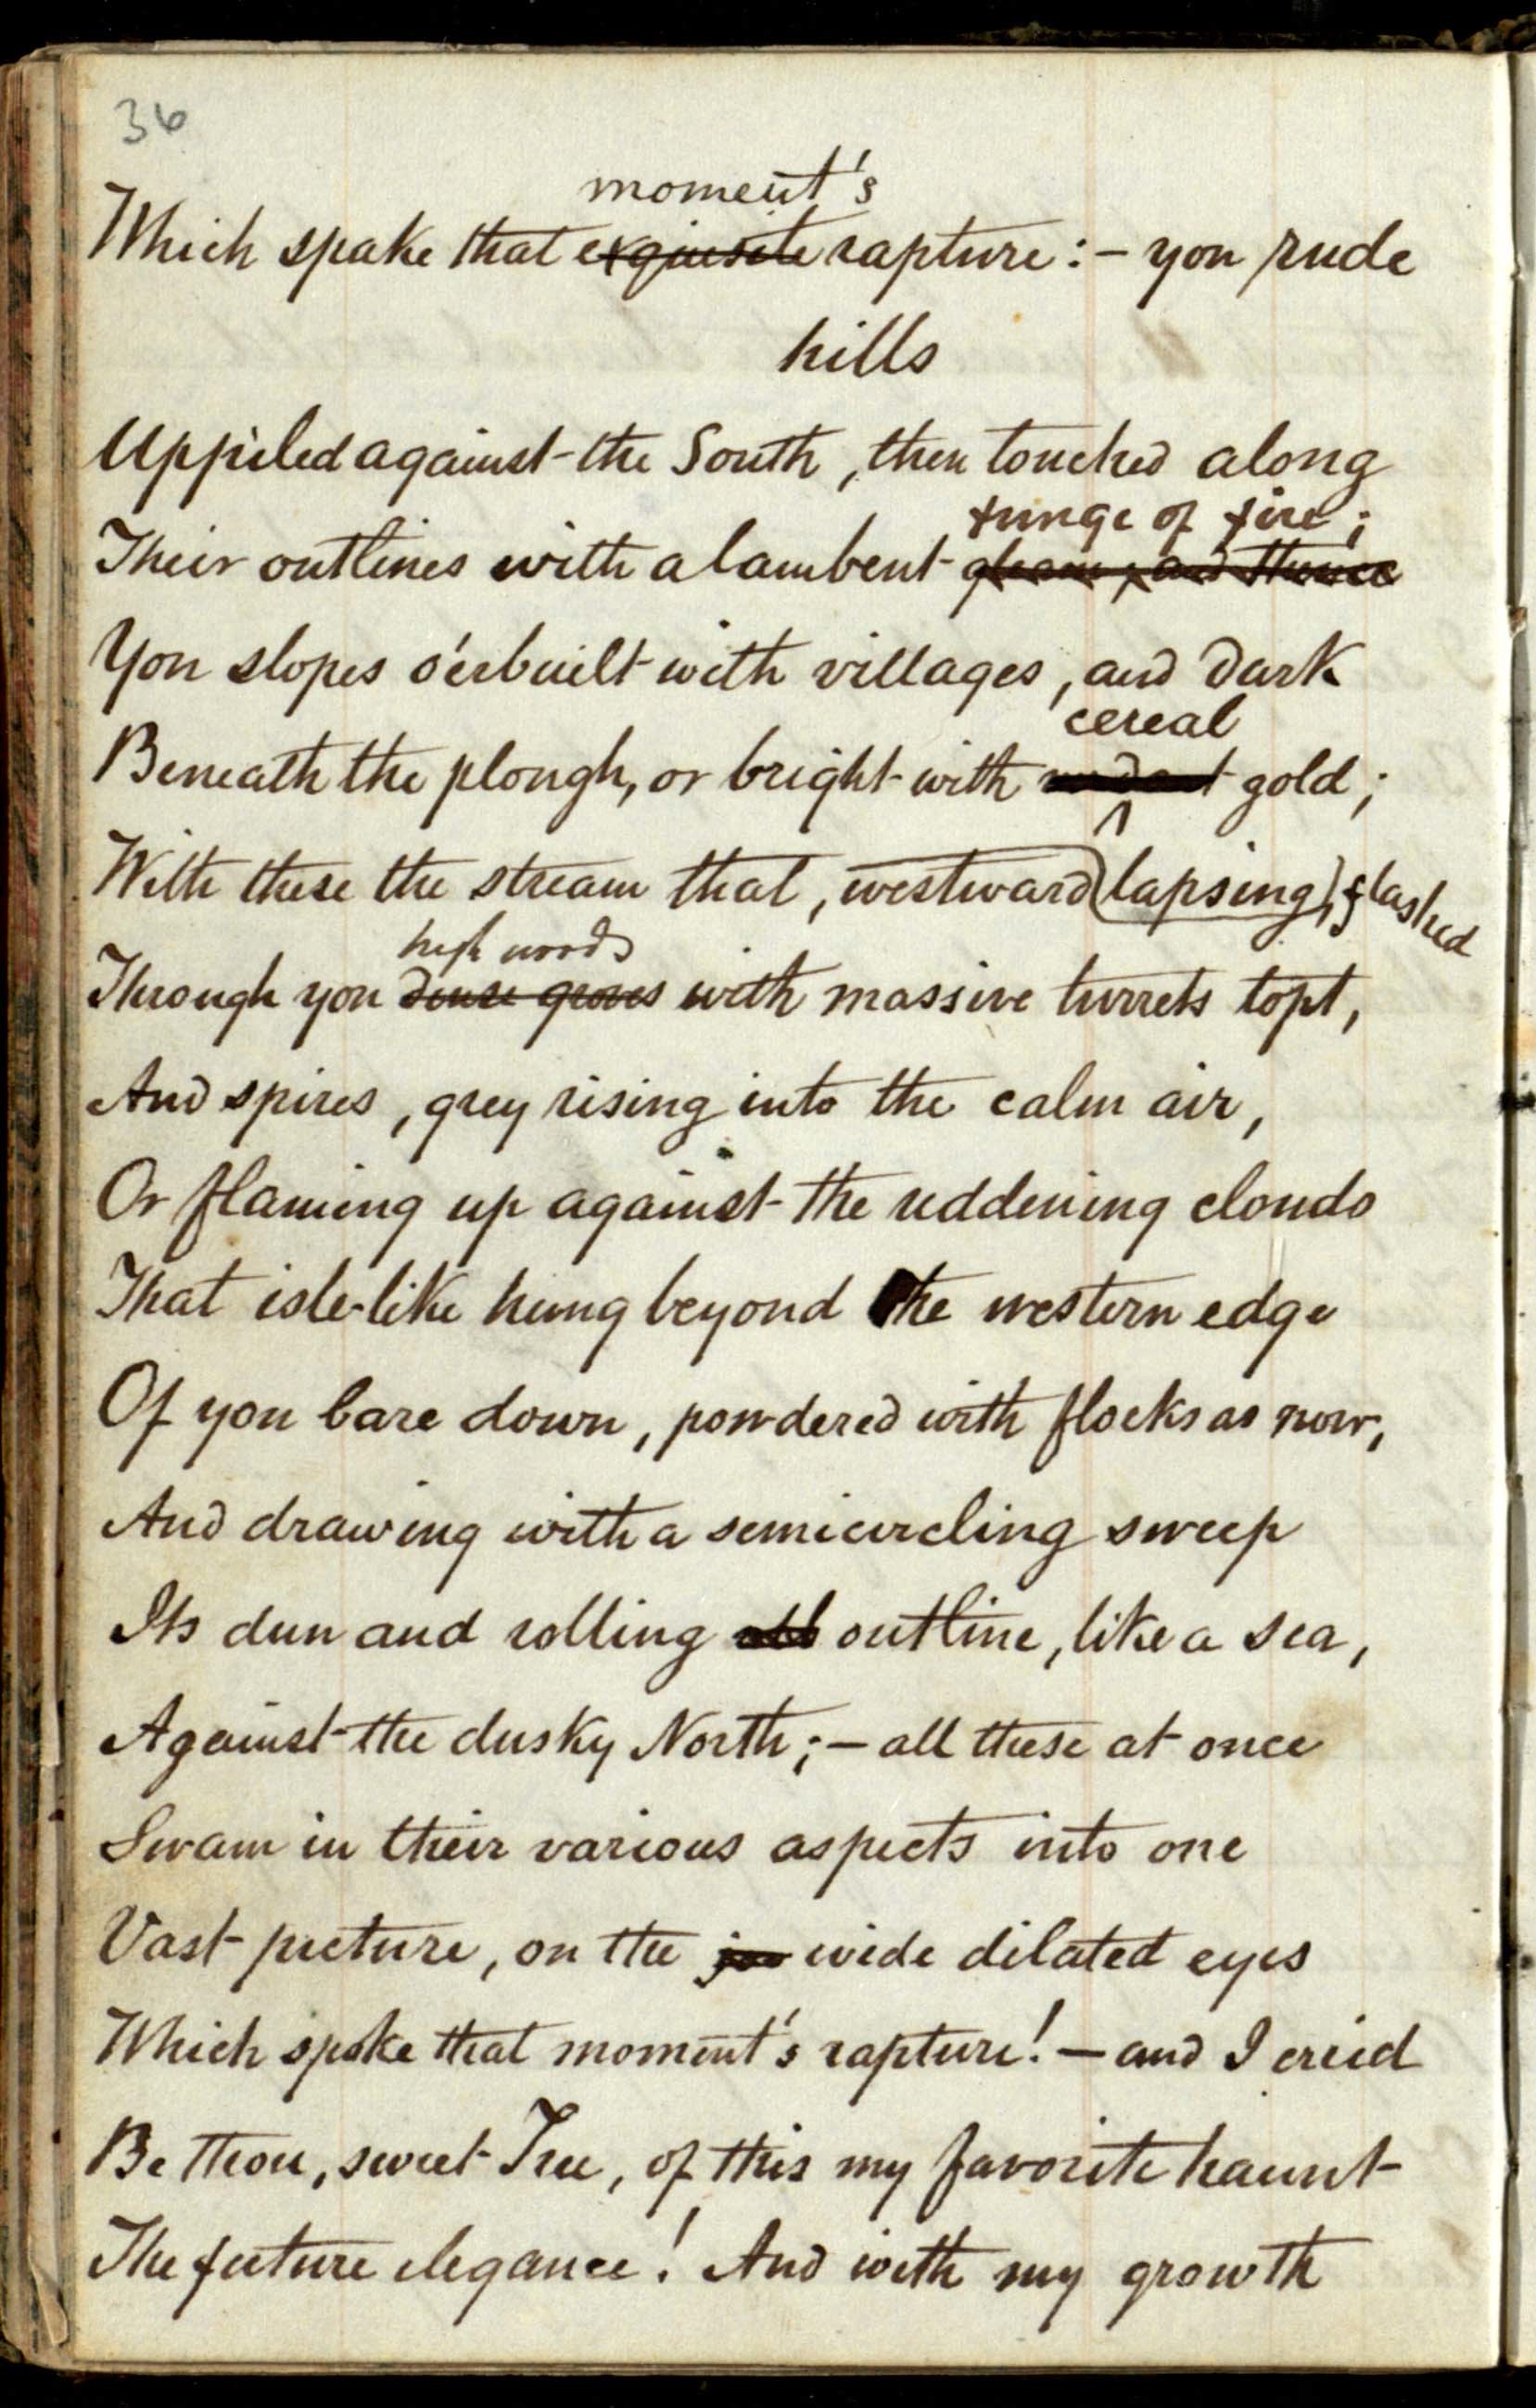 36
moment's
Which spake that exquisite rapture:— yon rude
hills
Uppiled against the South, then touched along
fringe of fire;
Their outlines with a lambent gleam, and thence
Yon slopes o'erbuilt with villages, and dark
cereal
Beneath the plough, or bright with gold;
With these the stream that, westward (lapsing), flashed
high woods
Through yon dense groves with massive turrets topt,
And spires, grey rising into the calm air,
Or flaming up against the reddening clouds
That isle-like hung beyond the western edge
Of yon bare down, powdered with flocks as now,
And drawing with a semicircling sweep
Its dun and rolling outline, like a sea,
Against the dusky North;— all these at once
Swam in their various aspects into one
Vast picture, on the wide dilated eyes
Which spoke that moment's rapture!— and I cried
Be thou, sweet Tree, of this my favorite haunt
The future elegance! And with my growth